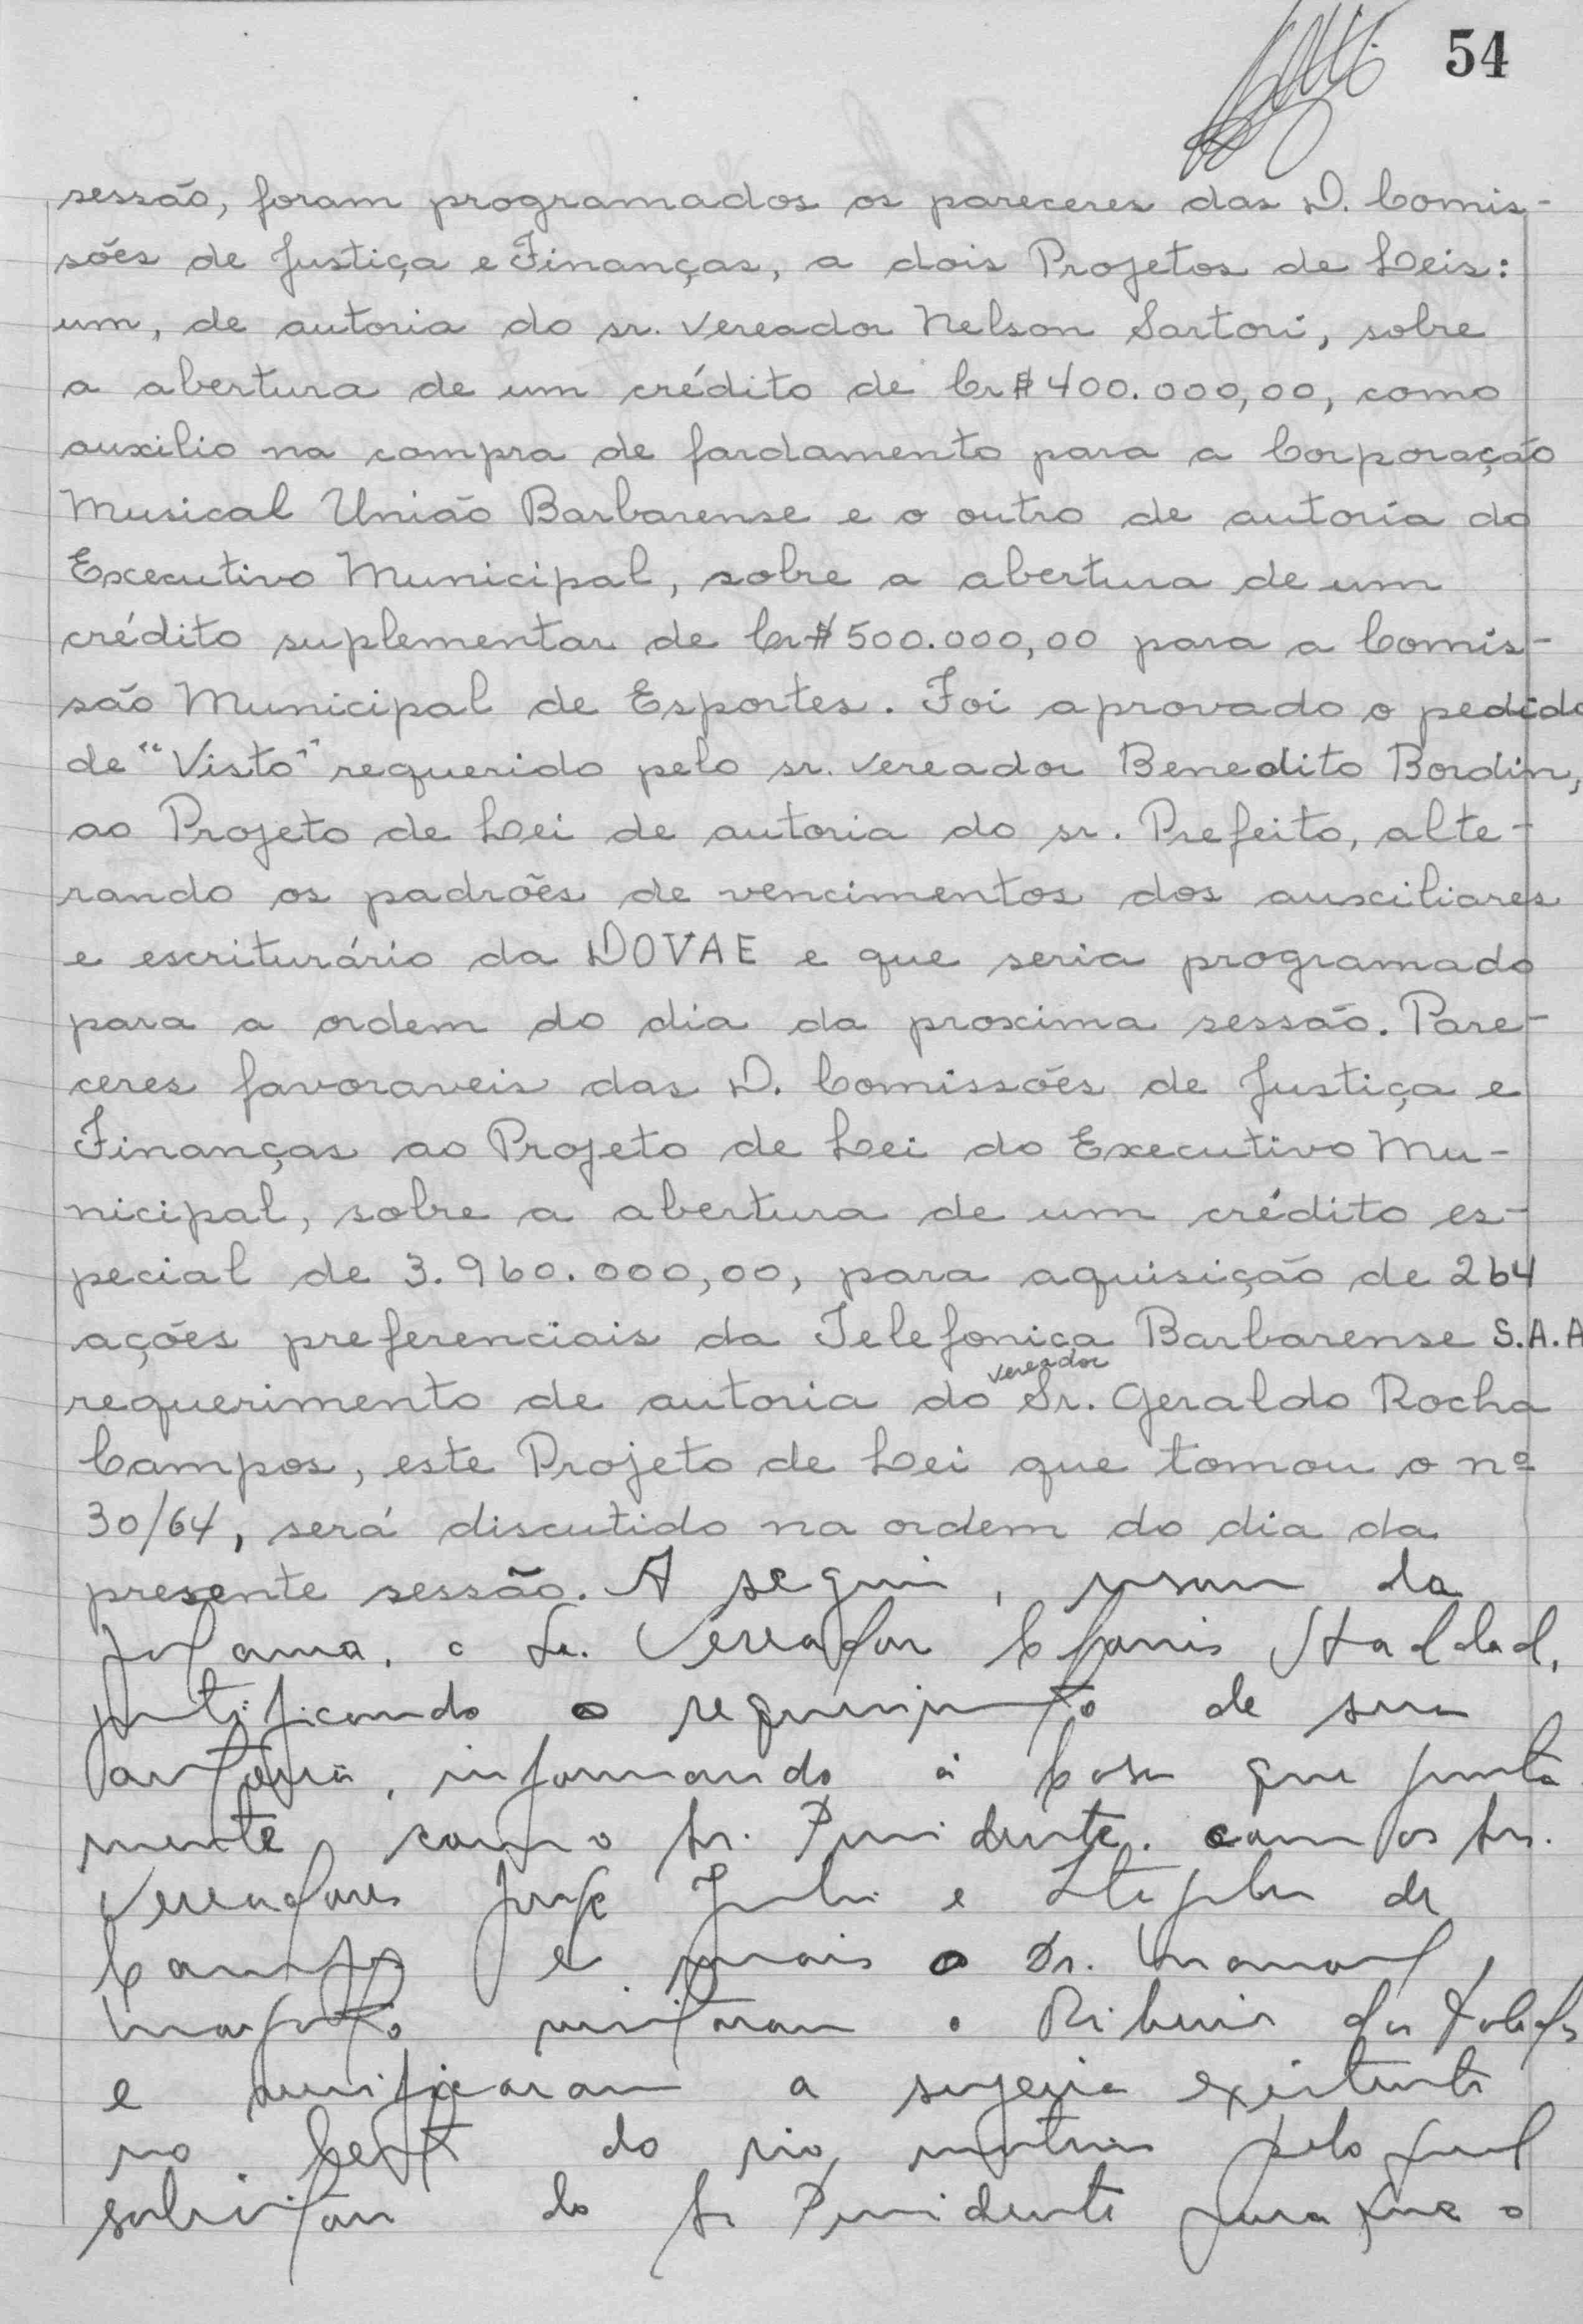 54
sessão, foram programados os pareceres das D. Comis-
sões de Justiça e Finanças, a dois Projetos de Leis:
um, de autoria do sr. vereador Nelson Sartori, sobre
a abertura de um crédito de Cr$400.000,00, como
auxilio na compra de fardamento para a Corporação
Musical União Barbarense e o outro de autoria do
Executivo Municipal, sobre a abertura de um
crédito suplementar de Cr$500.000,00 para a Comis-
são Municipal de Esportes. Foi aprovado o pedido
de "Visto" requerido pelo sr. vereador Benedito Bordin,
ao Projeto de Lei de autoria do sr. Prefeito, alte-
rando os padrões de vencimentos dos auxiliares
e escriturário da DOVAE e que seria programado
para a ordem do dia da proxima sessão. Pare-
ceres favoraveis das D. Comissões de Justiça e
Finanças ao Projeto de Lei do Executivo Mu-
nicipal, sobre a abertura de um crédito es-
pecial de 3.960.000,00, para aquisição de 264
ações preferenciais da Telefonica Barbarense S.A. A
vereador
requerimento de autoria do Sr. Geraldo Rocha
Campos, este Projeto de Lei que tomou o nº
30/64, será discutido na ordem do dia da
presente sessão. A seguir, usou da
palavra, o Sr. Vereador Chafic Haddad,
justificando o requerimento de sua
autoria, informando à Casa que junta
mente com o Sr. Presidente. com os Srs.
Vereadores Jorge e de
Campos e mais o Dr.
visitaram o Ribeirão dos Toledos
e verificaram a sugeira existente
no leito do rio, motivo pelo qual
solicitou do Sr Presidente para que o